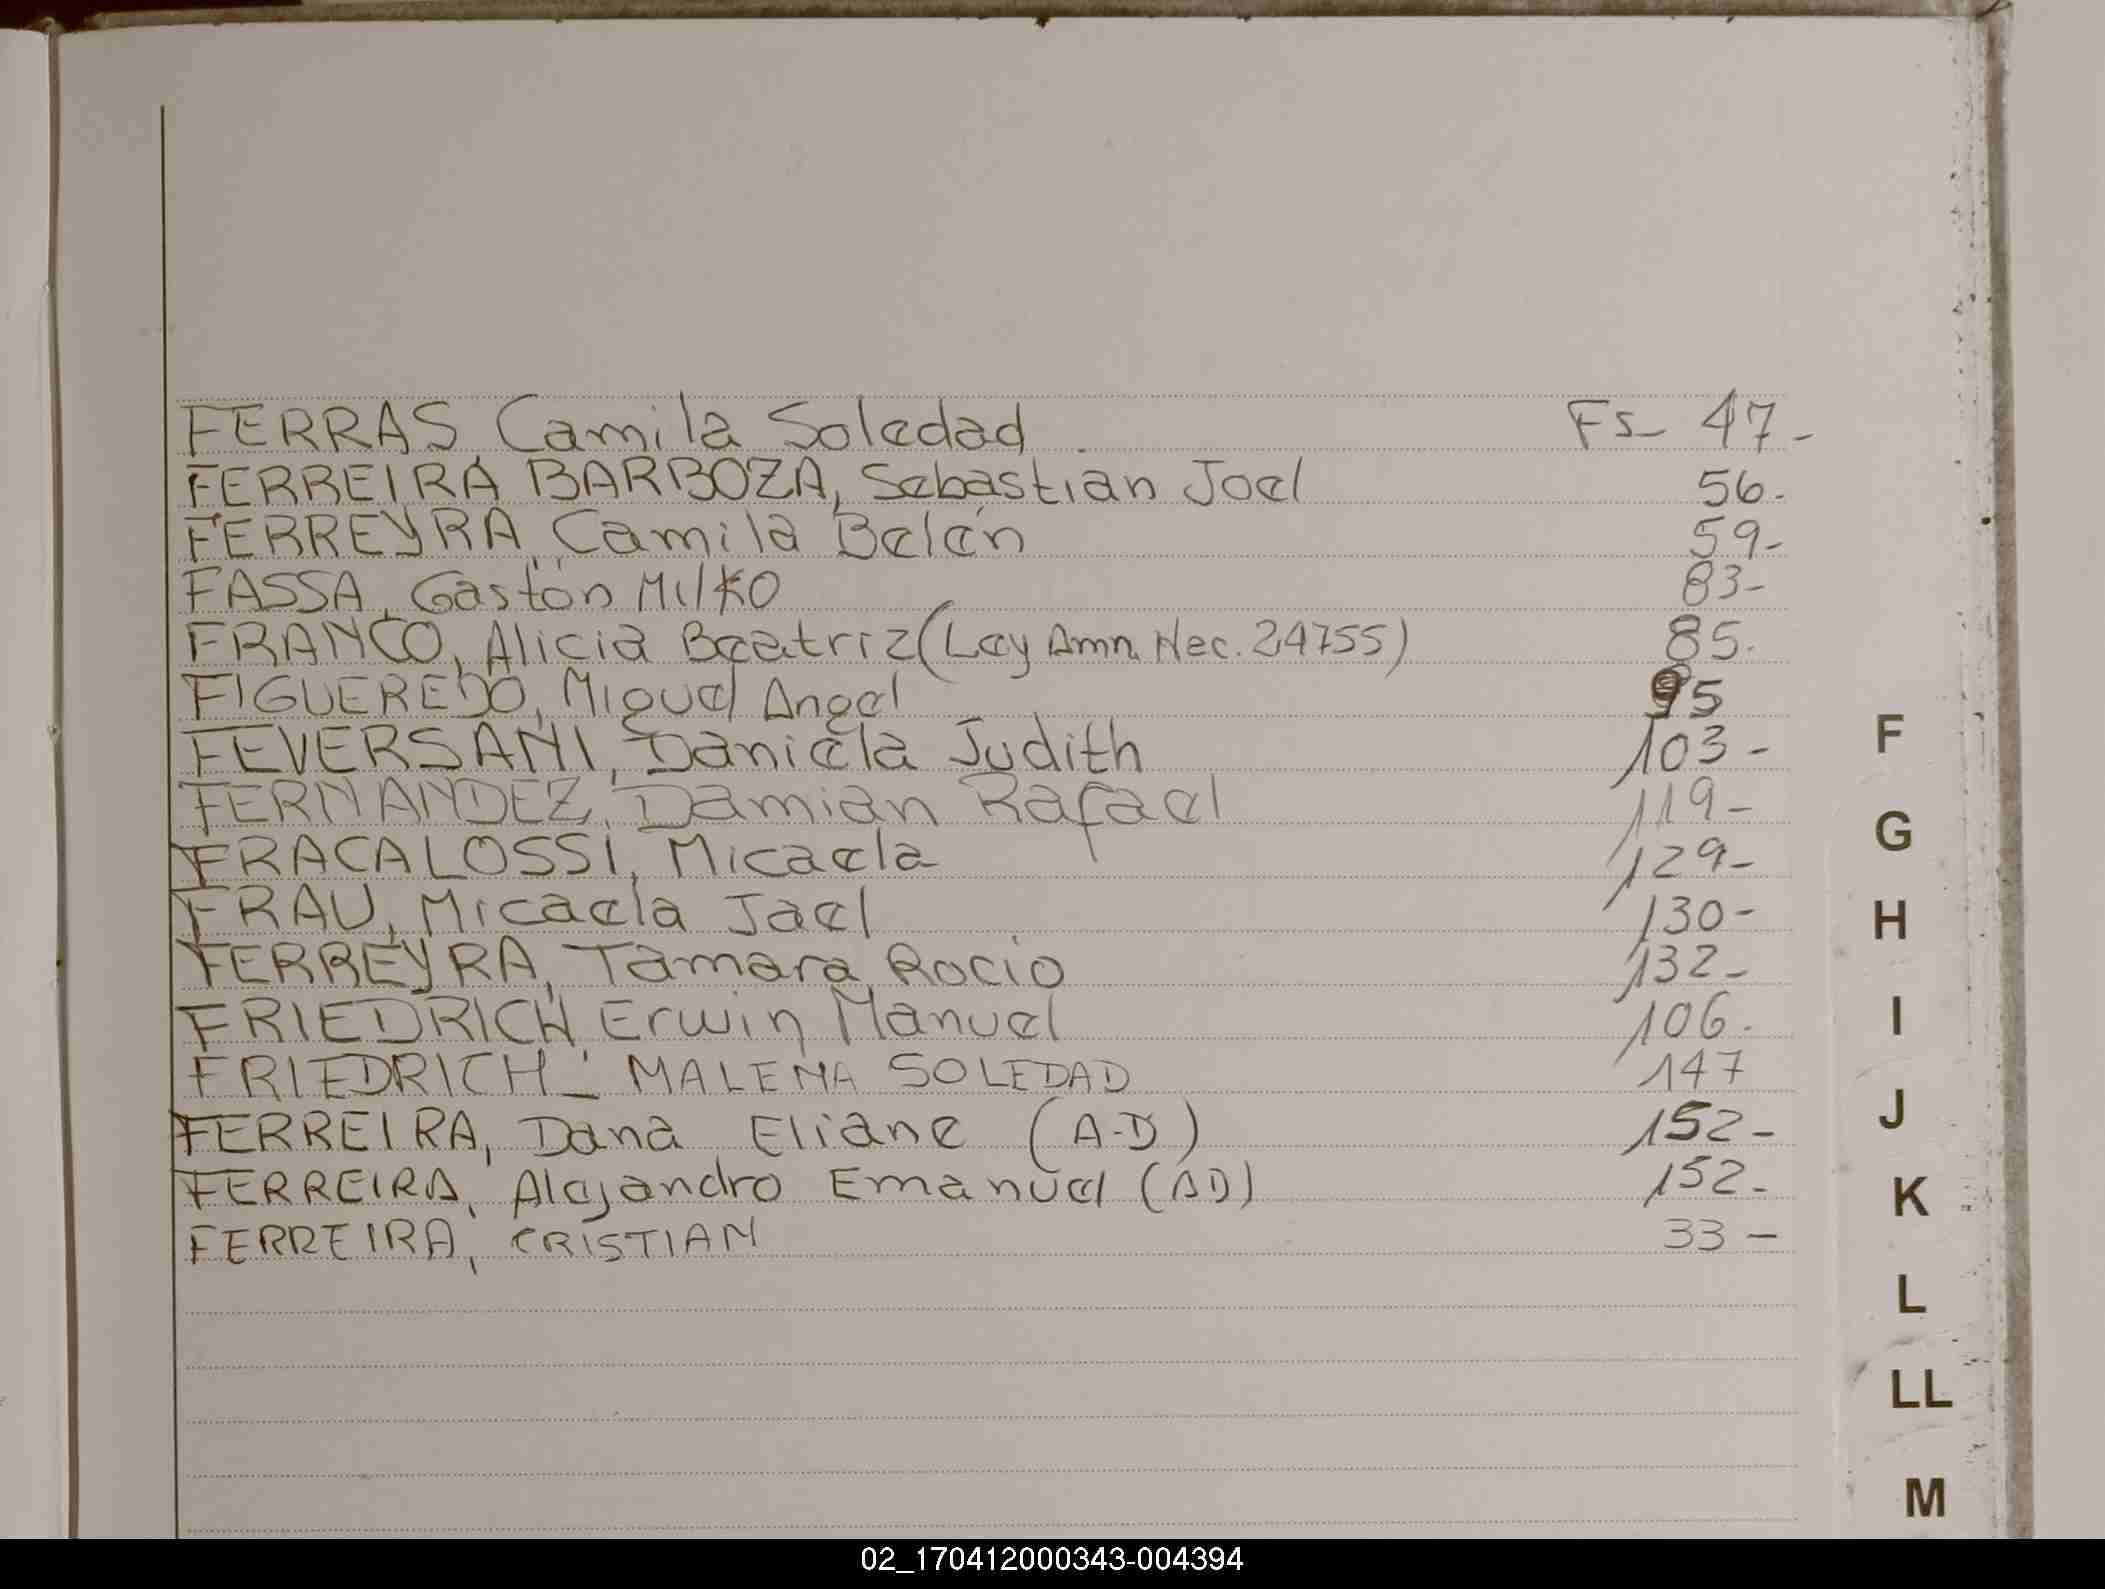 FERRAS, Camila Soledad Fs- 47-
FERREIRA BARBOZA, Sebastian Joel 56.
FERREYRA, Camila Belén 59-
FASSA, Gastón Milko 83-
FRANCO, Alicia Beatriz (Ley Amn. Nec. 24755) 85.
FIGUEREDO, Miguel Angel 95
FEVERSANI, Daniela Judith 103-
FERNANDEZ, Damian Rafael 119-
FRACALOSSI, Micaela 129-
FRAU, Micaela Jael 130-
FERREYRA, Tamara Rocío 132-
FRIEDRICH, Erwin Manuel 106.
FRIEDRICH- MALENA SOLEDAD 147
FERREIRA, Dana Eliane (A-D) 152-
FERREIRA, Alejandro Emanuel (AD) 152-
FERREIRA, CRISTIAN 33-
F
G
H
I
J
K
L
LL
M
02_170412000343-004394